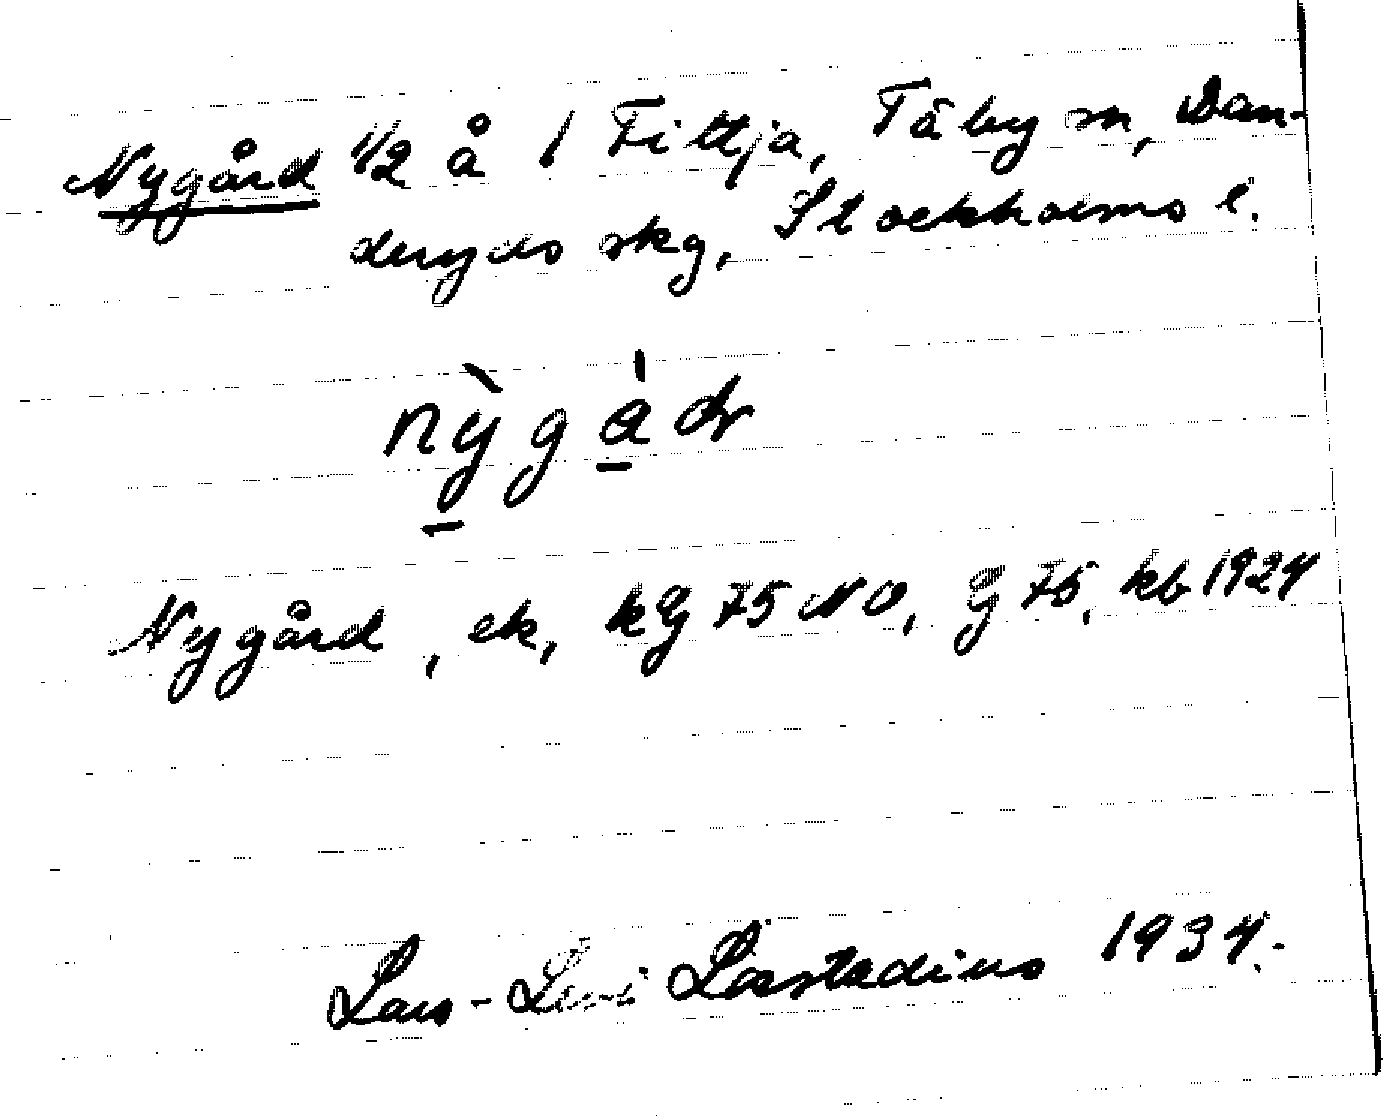 Nygård 1/2 å 1 Fittja, Täby sn, Dan-
deryds skg, Stockholms l.
nỳgådr
Nygård, ek, kG 75 NO, G 75, kb 1924
Lars-Levi Læstadius 1934.